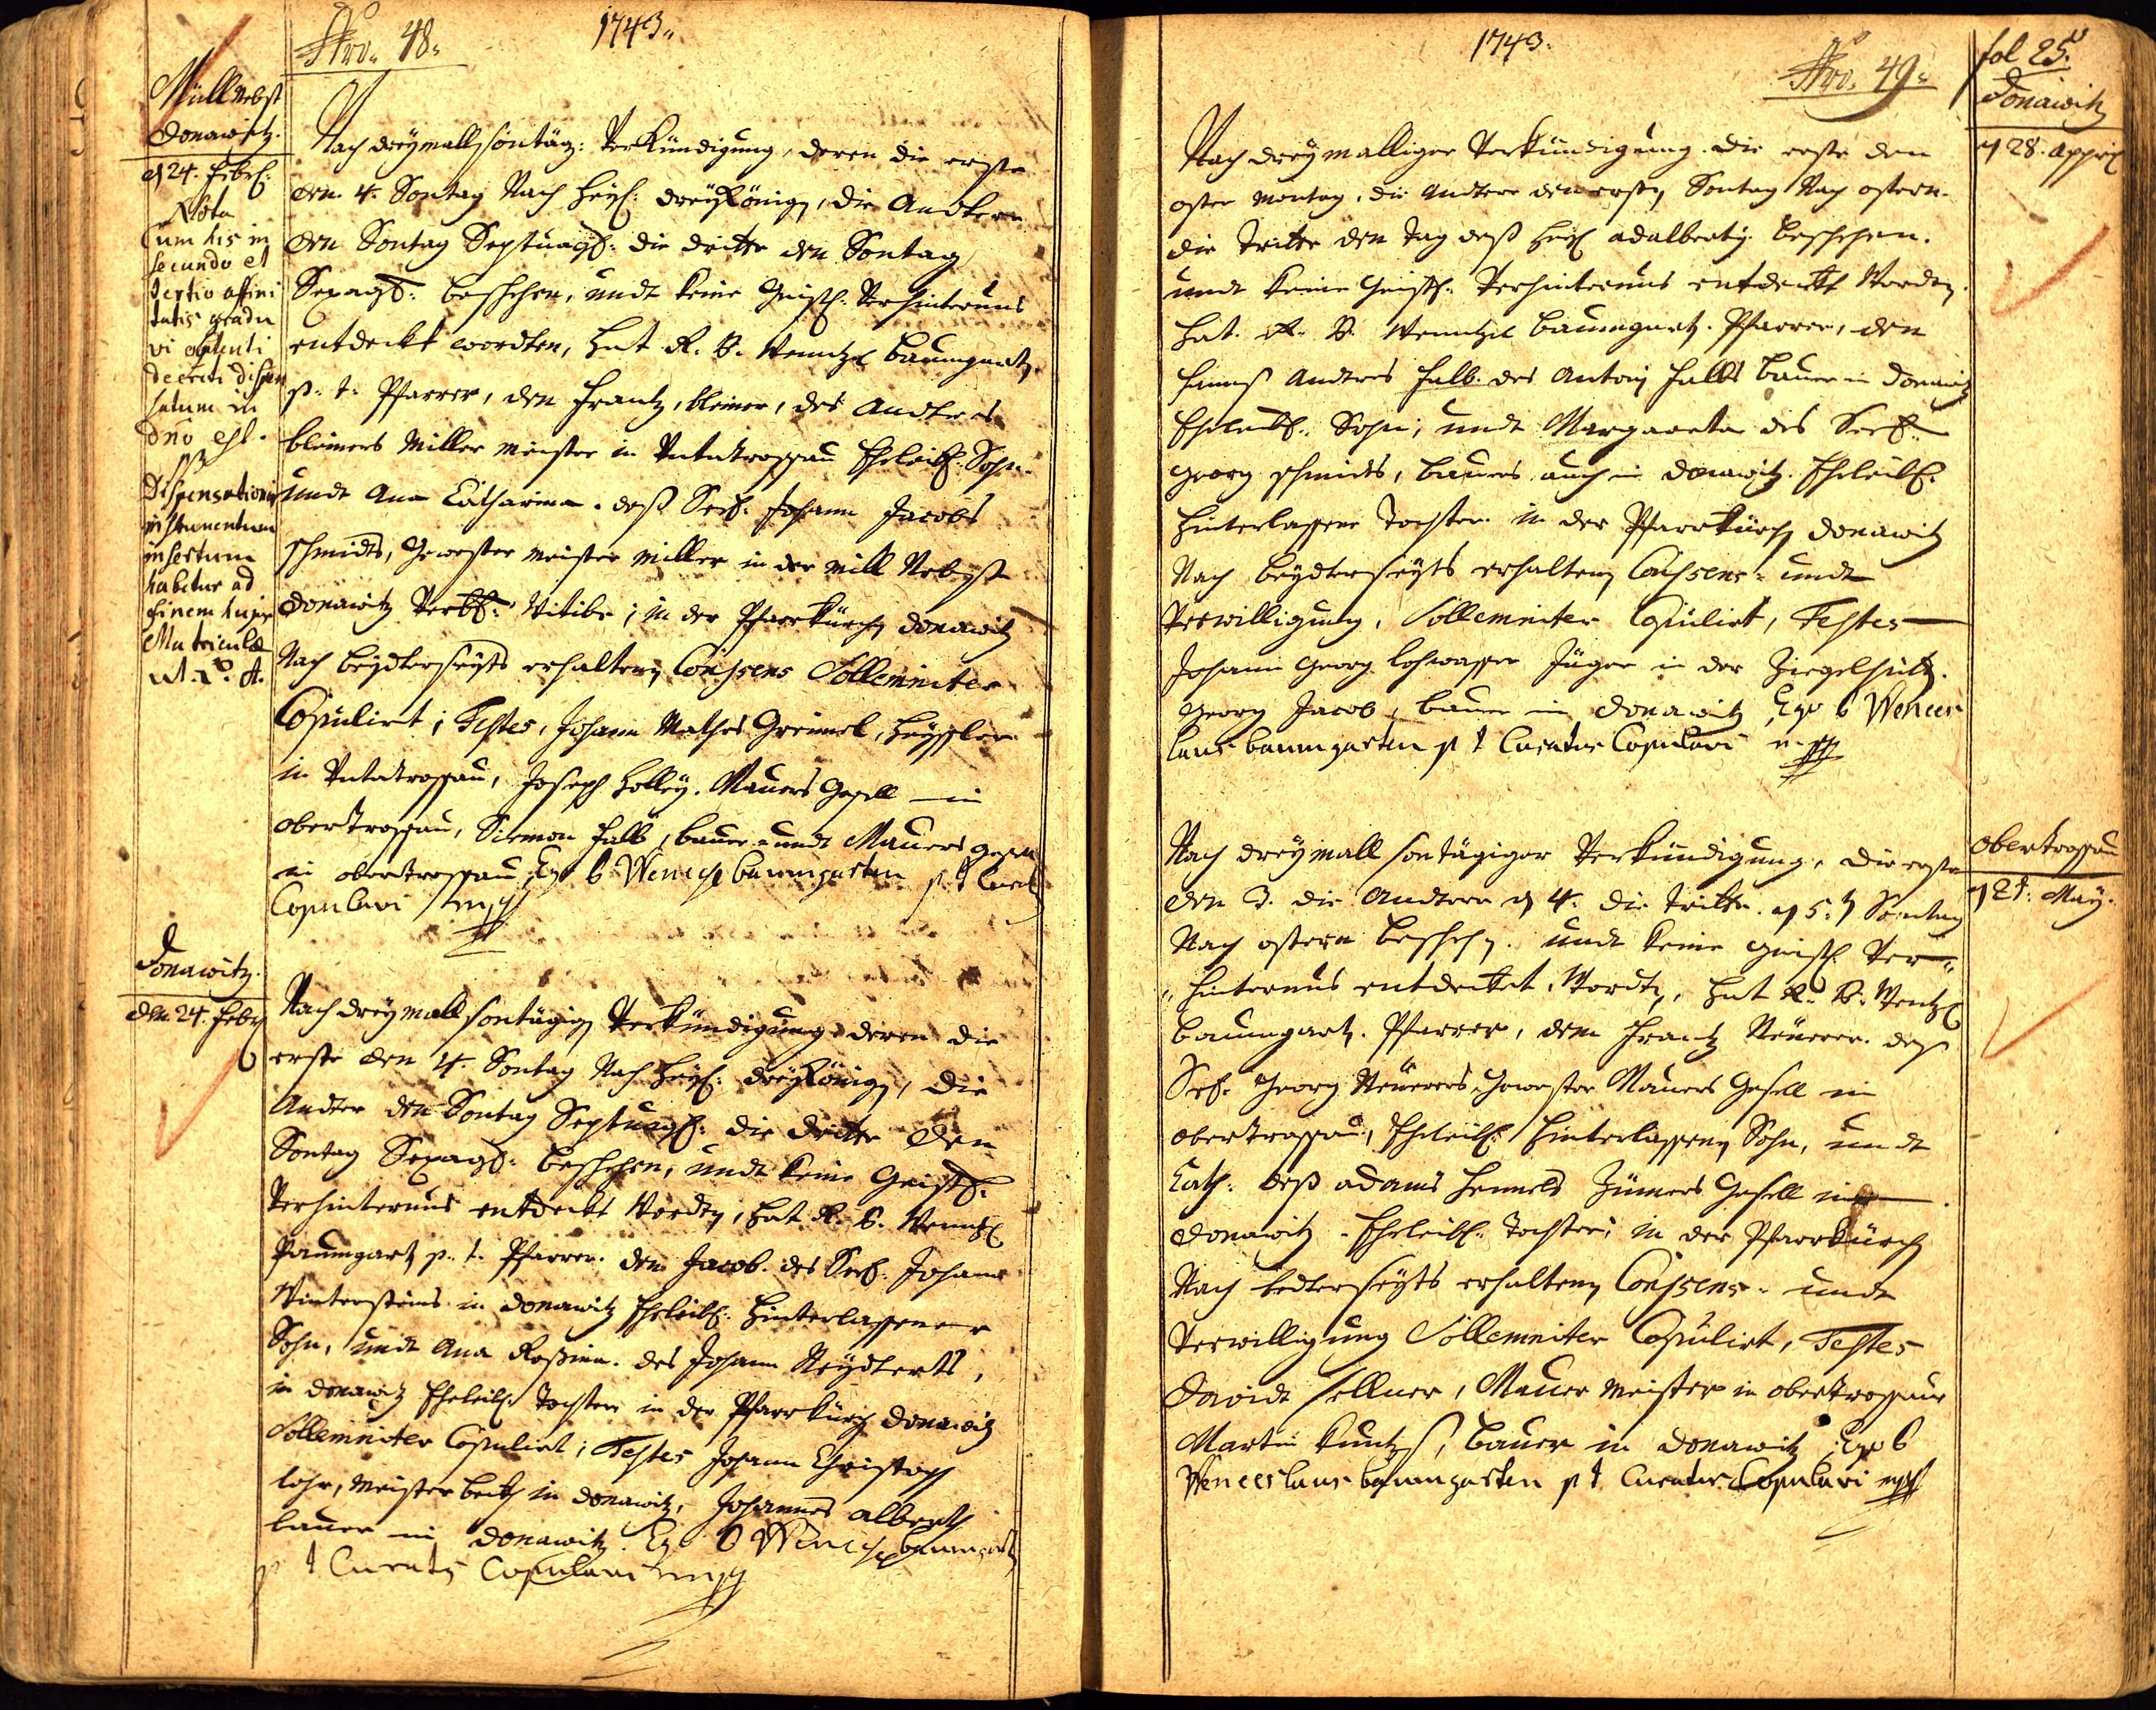 Nro. 48.
1743.
Müll Nebst
Donawitz.
24. Febr:
Nota
Cum his in
secundo et
tertio affini
tatis gradu
vi obtenti
decreti dispen
satum in
dno est.
Dispensationis
instrumentum
insertum
habetur ad
finem hujus
Matriculæ
Nach dreymall sontäg: Verkündigung, deren die erste
den 4. Sontag Nach Heyl: dreyKönig, die Andtere
den Sontag Septuag: die dritte den Sontag
Sexag: beschehen, undt keine Geistl: Verhinternus
entdeckt wordten, Hat R. P. Wentzl Baumgartn
p. t. Pfarrer, den Frantz, bleiner, des Andtres
bleiners Miller meister in Untertrossau Eheleibl: Sohn
undt Ana Catharina. deß Seel: Johann Jacobs
schmidts, Gewester meister miller in der mill Nebst
Donawitz Verbl: Vitibe; in der Pfarrkürch Donawitz
Nach beydterseyts erhalten Consens Sollemniter
Copulirt; Testes, Johann Mathes Greimel, Heyssler
in Untertrossau, Joseph Holley. Maurers Gesell in
obertrossau, Siemon Falb, bauer undt Maurers gesell
in obertrossau Ego P Wencesl baumgarten p. t Curat
Copulavi mpp
Donawitz.
den 24. Febr
Nach dreymall sontägig Verkündigung deren die
erste den 4. Sontag Nach Heyl: dreyKönig, die
Andter den Sontag Septuag: die dritte den
Sontag Sexag: beschehen, undt keine Geistl:
Verhinternus entdeckt Worden, hat R. P. Wentzl
Paumgart p. t. Pfarrer. den Jacob. des Seel: Johann
Wintersteins in Donawitz Eheleibl: Hinterlassener
Sohn, undt Ana Rosina. des Johann Neydterts,
in Donawitz Eheleibl: Tochter in der Pfarrkürch Donawitz
Sollemniter Copulirt; Testes Johann Christoph
lohr, meister beckh in Donawitz, Johannes albert
bauer in Donawitz. Ego P Wencesl baumgart
p t Curatus Copulavi mpp
1743.
Nro. 49.
fol 25.
Donawitz
28. Appril
Nach dreymalliger Verkündigung. die erste den
oster montag, die Andtere den ersten Sontag Nach ostern
die tritte den tag deß Heyl adalberty beschehen.
undt keine Geistl: Verhinternus entdeckt Worden.
hat. R. P. Wentzel baumgart. Pfarrer, den
Hannß Andteres Falb. des Antony Falbs bauer in Donawitz
Eheleibl: Sohn; undt Margareta des Seel:
Georg schmidts, bauers auch in Donawitz Eheleibl:
Hinterlassene Tochter. in der Pfarrkürch Donawitz
Nach beydterseyts erhalten Consens undt
Verwilligung, Sollemniter Copulirt, Testes
Johann Georg lohwasser Jäger in der Ziegelhütt.
Georg Jacob, bauer in Donawitz Ego P Wences
laus baumgarten p t Curatus Copulavi mpp
Obertrossau
21. May.
Nach dreymall sontägiger Verkündigung, die erste
den 3. die Andtere 4. die tritte 5. Sontag
Nach ostern beschehn. undt keine Geistl: Ver
hinternus entdecket Wordtn, hat R. P. Wentzl
baumgart. Pfarrer, dem Frantz Neuerer. des
Seel: Georg Neuerers, Gewester Maurers Gesell in
obertrossau, Eheleibl: Hinterlassen Sohn, undt
Cath: deß adams Hemmels Zimers Gesell in
Donawitz Eheleibl: Tochter; in der Pfarrkürch
Nach bedterseyts erhalten Consens undt
Verwilligung Sollemniter Copulirt, Testes
Davidt sellner, Maurer meister in obertrossau
Martin kuntz, bauer in Donawitz Ego P
Wenceslaus baumgarten p t Curatus Copulavi mpp